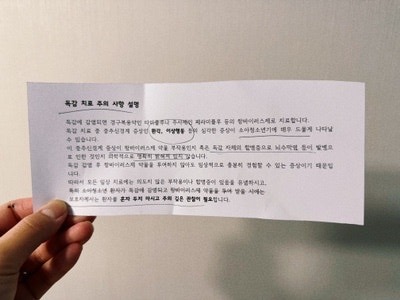 독감 치료 주의 사항 설명
독감에 감염되면 경구복용약인 타미플루나 주사제인 페라미플루 등의 항바이러스제로 치료합니다.
독감 치료 중 중추신경계 증상인 환각, 이상행동 등의 심각한 증상이 소아청소년기에 매우 드물게 나타날
수 있습니다.
이 중추신경계 증상이 항바이러스제 약물 부작용인지 혹은 독감 자체의 합병증으로 뇌수막염 등이 발병으
로 인한 것인지 의학적으로 명확히 밝혀져 있지 않습니다.
독감 감염 후 항바이러스제 약물을 투여하지 않아도 임상적으로 충분히 경험할 수 있는 증상이기 때문입
니다.
따라서 모든 일상 치료에는 의도치 않은 부작용이나 합병증이 있음을 유념하시고,
특히 소아청소년 환자가 독감에 감염되고 항바이러스제 약물을 투여 받을 시에는
보호자께서는 환자를 혼자 두지 마시고 주의 깊은 관찰이 필요합니다.